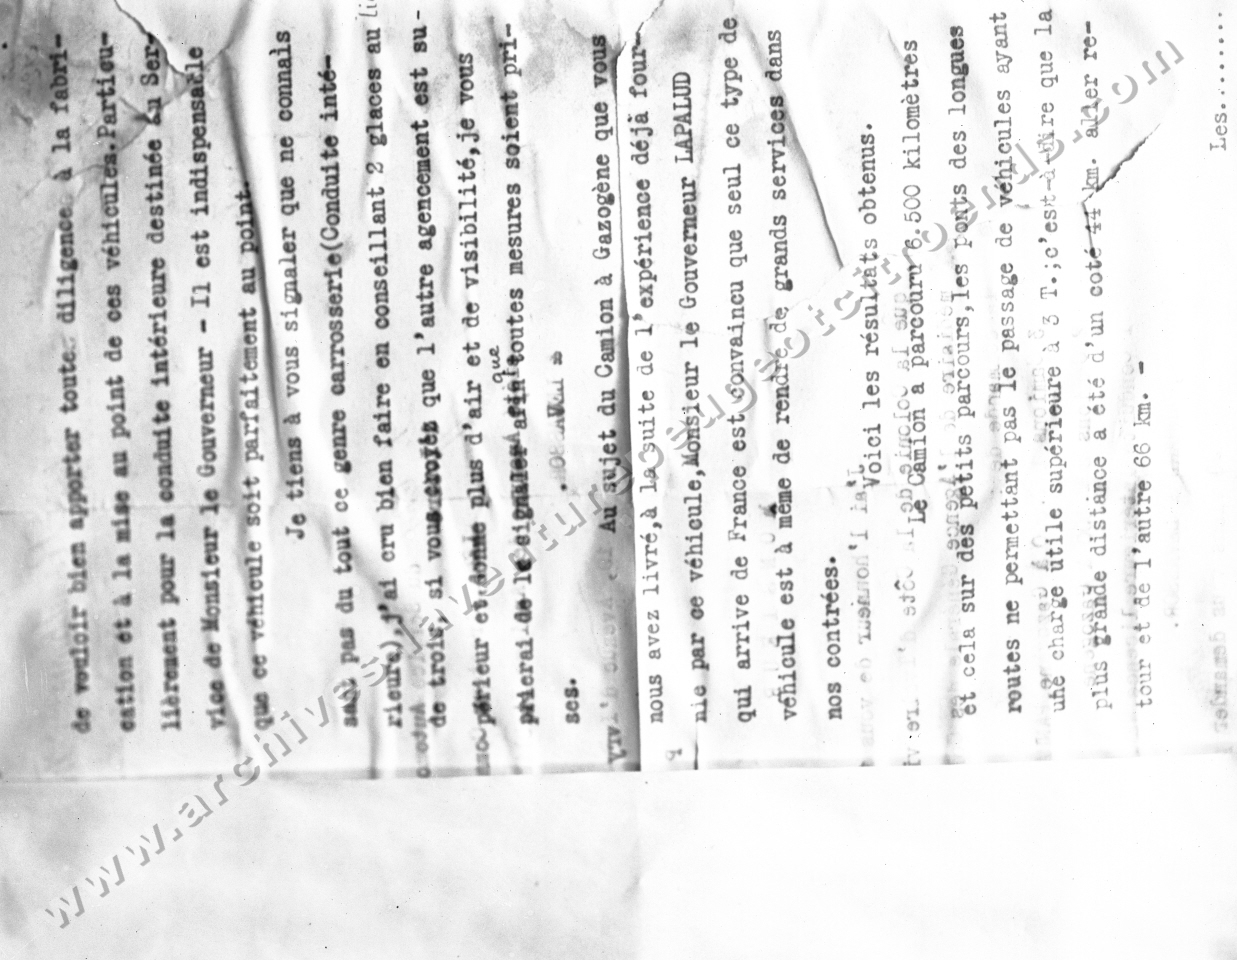 de vouloir bien apporter toute diligence à la fabri-
cation et à la mise au point de ces véhicules.Particu-
lièrement pour la conduite intérieure destinée au Ser-
vice de Monsieur le Gouverneur - Il est indispensable
que ce véhicule soit parfaitement au point.
Je tiens à vous signaler que ne connais
sant pas du tout ce genre carrosserie(Conduite inté-
rieure),j'ai cru bien faire en conseillant 2 glaces au
de trois, si vous croyez que l'autre agencement est su-
périeur et donne plus d'air et de visibilité,je vous
que
prierai de le signaler afin toutes mesures soient pri-
ses.
Au sujet du Camion à Gazogène que vous
nous avez livré,à la suite de l'expérience déjà four-
nie par ce véhicule,Monsieur le Gouverneur LAPALUD
qui arrive de France est convaincu que seul ce type de
véhicule est à même de rendre de grands services dans
nos contrées.
Voici les résultats obtenus.
Le Camion a parcouru 6.500 kilomètres
et cela sur des petits parcours,les ponts des longues
routes ne permettant pas le passage de véhicules ayant
une charge utile supérieure à 3 T.;c'est-à-dire que la
plus grande distance a été d'un coté 44 km. aller re-
tour et de l'autre 66 km. -
Les........
www.archives-laventure-peugeotcitroends.com